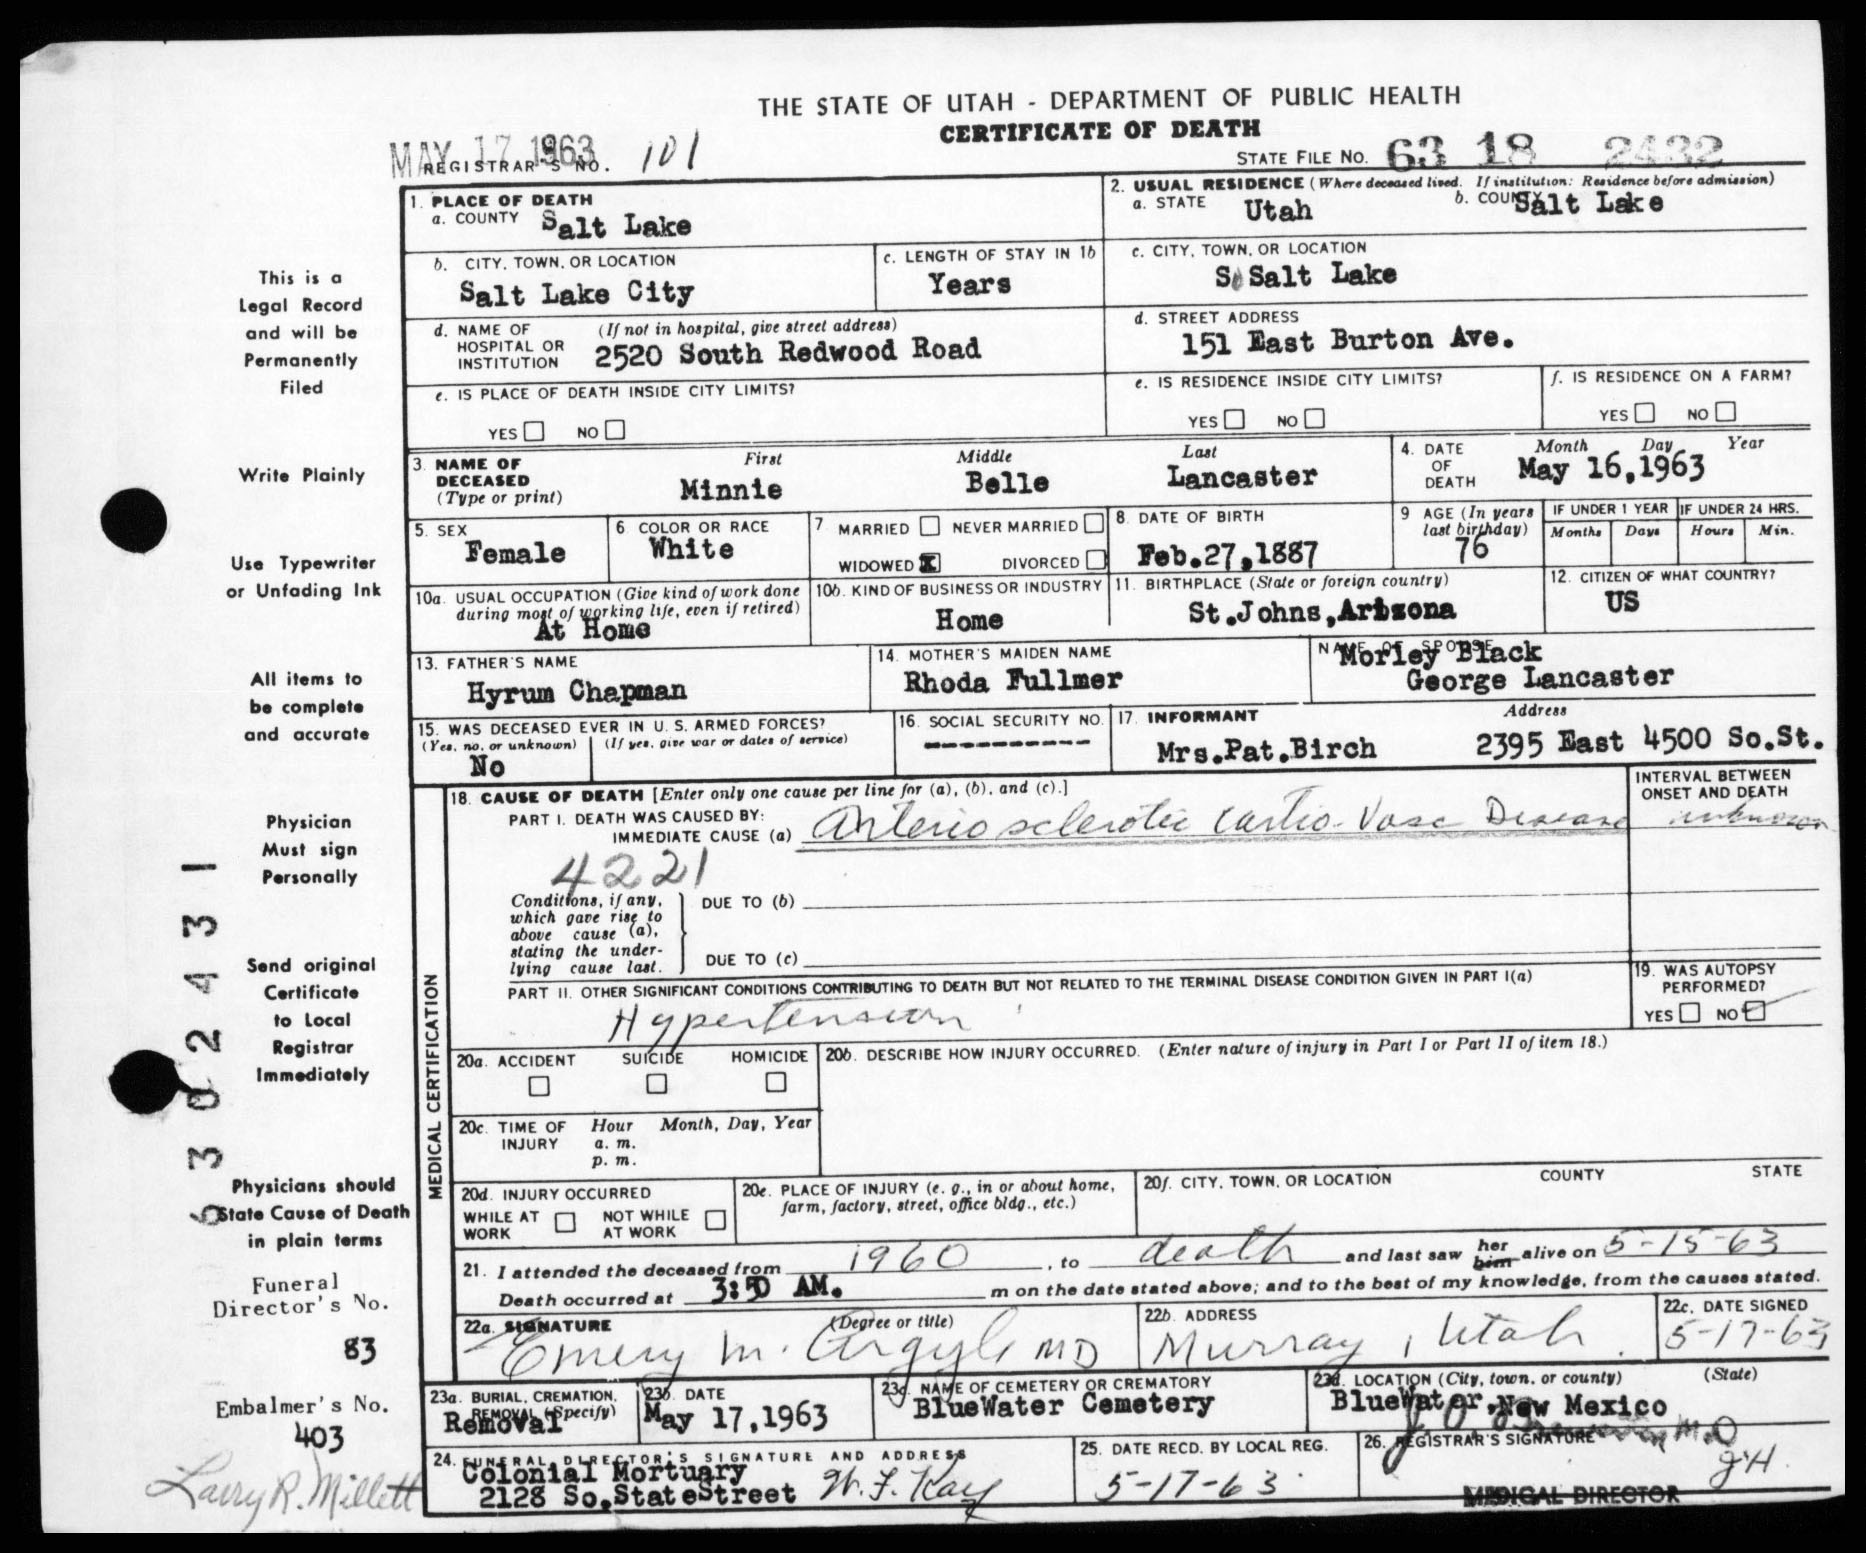 THE STATE OF UTAH - DEPARTMENT OF PUBLIC HEALTH
CERTIFICATE OF DEATH
MAY 17 1963
REGISTRAR'S NO. 101
STATE FILE NO. 63 18 2432
This is a
Legal Record
and will be
Permanently
Filed
Write Plainly
Use Typewriter
or Unfading Ink
All items to
be complete
and accurate
Physician
Must sign
Personally
Send original
Certificate
to Local
Registrar
Immediately
Physicians should
State Cause of Death
in plain terms
Funeral
Director's No.
83
Embalmer's No.
403
Larry R. Millett
63024 31
1. PLACE OF DEATH
a. COUNTY Salt Lake
2. USUAL RESIDENCE (Where deceased lived. If institution: Residence before admission)
a. STATE Utah b. COUNTY Salt Lake
b. CITY, TOWN, OR LOCATION
Salt Lake City
c. LENGTH OF STAY IN 1b
Years
c. CITY, TOWN, OR LOCATION
So Salt Lake
d. NAME OF HOSPITAL OR INSTITUTION (If not in hospital, give street address)
2520 South Redwood Road
d. STREET ADDRESS
151 East Burton Ave.
e. IS PLACE OF DEATH INSIDE CITY LIMITS?
YES NO
e. IS RESIDENCE INSIDE CITY LIMITS?
YES NO
f. IS RESIDENCE ON A FARM?
YES NO
3. NAME OF DECEASED (Type or print)
First Middle Last
Minnie Belle Lancaster
4. DATE OF DEATH Month Day Year
May 16,1963
5. SEX
Female
6. COLOR OR RACE
White
7 MARRIED NEVER MARRIED
WIDOWED X DIVORCED
8. DATE OF BIRTH
Feb.27,1887
9 AGE (In years last birthday)
76
IF UNDER 1 YEAR IF UNDER 24 HRS.
Months Days Hours Min.
10a. USUAL OCCUPATION (Give kind of work done during most of working life, even if retired)
At Home
10b. KIND OF BUSINESS OR INDUSTRY
Home
11. BIRTHPLACE (State or foreign country)
St.Johns,Arizona
12. CITIZEN OF WHAT COUNTRY?
US
13. FATHER'S NAME
Hyrum Chapman
14. MOTHER'S MAIDEN NAME
Rhoda Fullmer
NAME OF SPOUSE
Morley Black
George Lancaster
15. WAS DECEASED EVER IN U. S. ARMED FORCES?
(Yes, no, or unknown) (If yes, give war or dates of service)
No
16. SOCIAL SECURITY NO.
----------
17. INFORMANT Address
Mrs.Pat.Birch 2395 East 4500 So.St.
MEDICAL CERTIFICATION
18. CAUSE OF DEATH [Enter only one cause per line for (a), (b), and (c).]
INTERVAL BETWEEN ONSET AND DEATH
PART I. DEATH WAS CAUSED BY:
IMMEDIATE CAUSE (a) Arteriosclerotic Cardio-Vasc Disease unknown
4221
Conditions, if any,
which gave rise to
above cause (a),
stating the under-
lying cause last.
DUE TO (b)
DUE TO (c)
PART II. OTHER SIGNIFICANT CONDITIONS CONTRIBUTING TO DEATH BUT NOT RELATED TO THE TERMINAL DISEASE CONDITION GIVEN IN PART I(a)
Hypertension
19. WAS AUTOPSY PERFORMED?
YES NO ✓
20a. ACCIDENT SUICIDE HOMICIDE
20b. DESCRIBE HOW INJURY OCCURRED. (Enter nature of injury in Part I or Part II of item 18.)
20c. TIME OF INJURY Hour Month, Day, Year
a. m.
p. m.
20d. INJURY OCCURRED
WHILE AT WORK NOT WHILE AT WORK
20e. PLACE OF INJURY (e. g., in or about home, farm, factory, street, office bldg., etc.)
20f. CITY, TOWN, OR LOCATION COUNTY STATE
21. I attended the deceased from 1960, to death and last saw her him alive on 5-15-63
Death occurred at 3:50 AM. m on the date stated above; and to the best of my knowledge, from the causes stated.
22a. SIGNATURE (Degree or title)
Emery M. Argyle MD
22b. ADDRESS
Murray, Utah
22c. DATE SIGNED
5-17-63
23a. BURIAL, CREMATION, REMOVAL (Specify)
Removal
23b. DATE
May 17,1963
23c. NAME OF CEMETERY OR CREMATORY
BlueWater Cemetery
23d. LOCATION (City, town, or county) (State)
BlueWater,New Mexico
24. FUNERAL DIRECTOR'S SIGNATURE AND ADDRESS
Colonial Mortuary
2128 So.StateStreet W. F. Kay
25. DATE RECD. BY LOCAL REG.
5-17-63
26. REGISTRAR'S SIGNATURE
M.D
JH
MEDICAL DIRECTOR